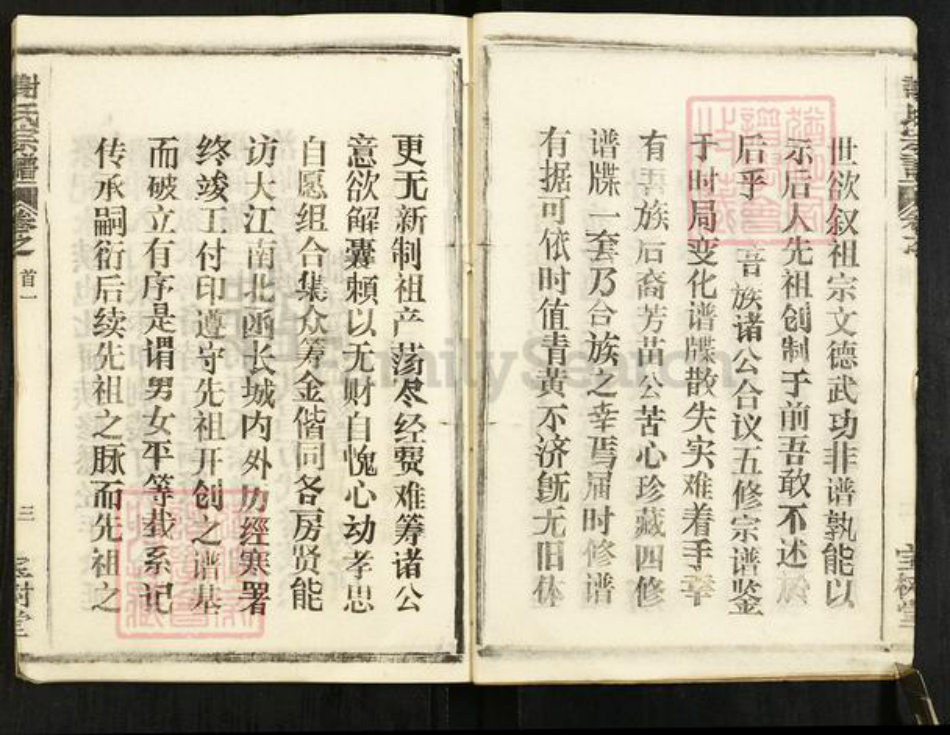 世欲叙祖宗文德武功非谱孰能以
示后人先祖创制于前吾敢不述於
后乎 吾族诸公合议五修宗谱鉴
于时局变化谱牒散失实难着手幸
有吾族后裔芳苗公苦心珍藏四修
谱牒一套乃合族之幸焉届时修谱
有据可依时值青黄不济既无旧体
更无新制祖产荡尽经费难筹诸公
意欲解囊赖以无财自愧心动孝思
自愿组合集众筹金偕同各房贤能
访大江南北函长城内外历經寒署
终竣工付印遵守先祖开创之谱基
而破立有序是谓男女平等载系记
传承嗣衍后续先祖之脉而先祖之
謝氏宗譜
卷之
首一
三
宝树堂
FamilySearch